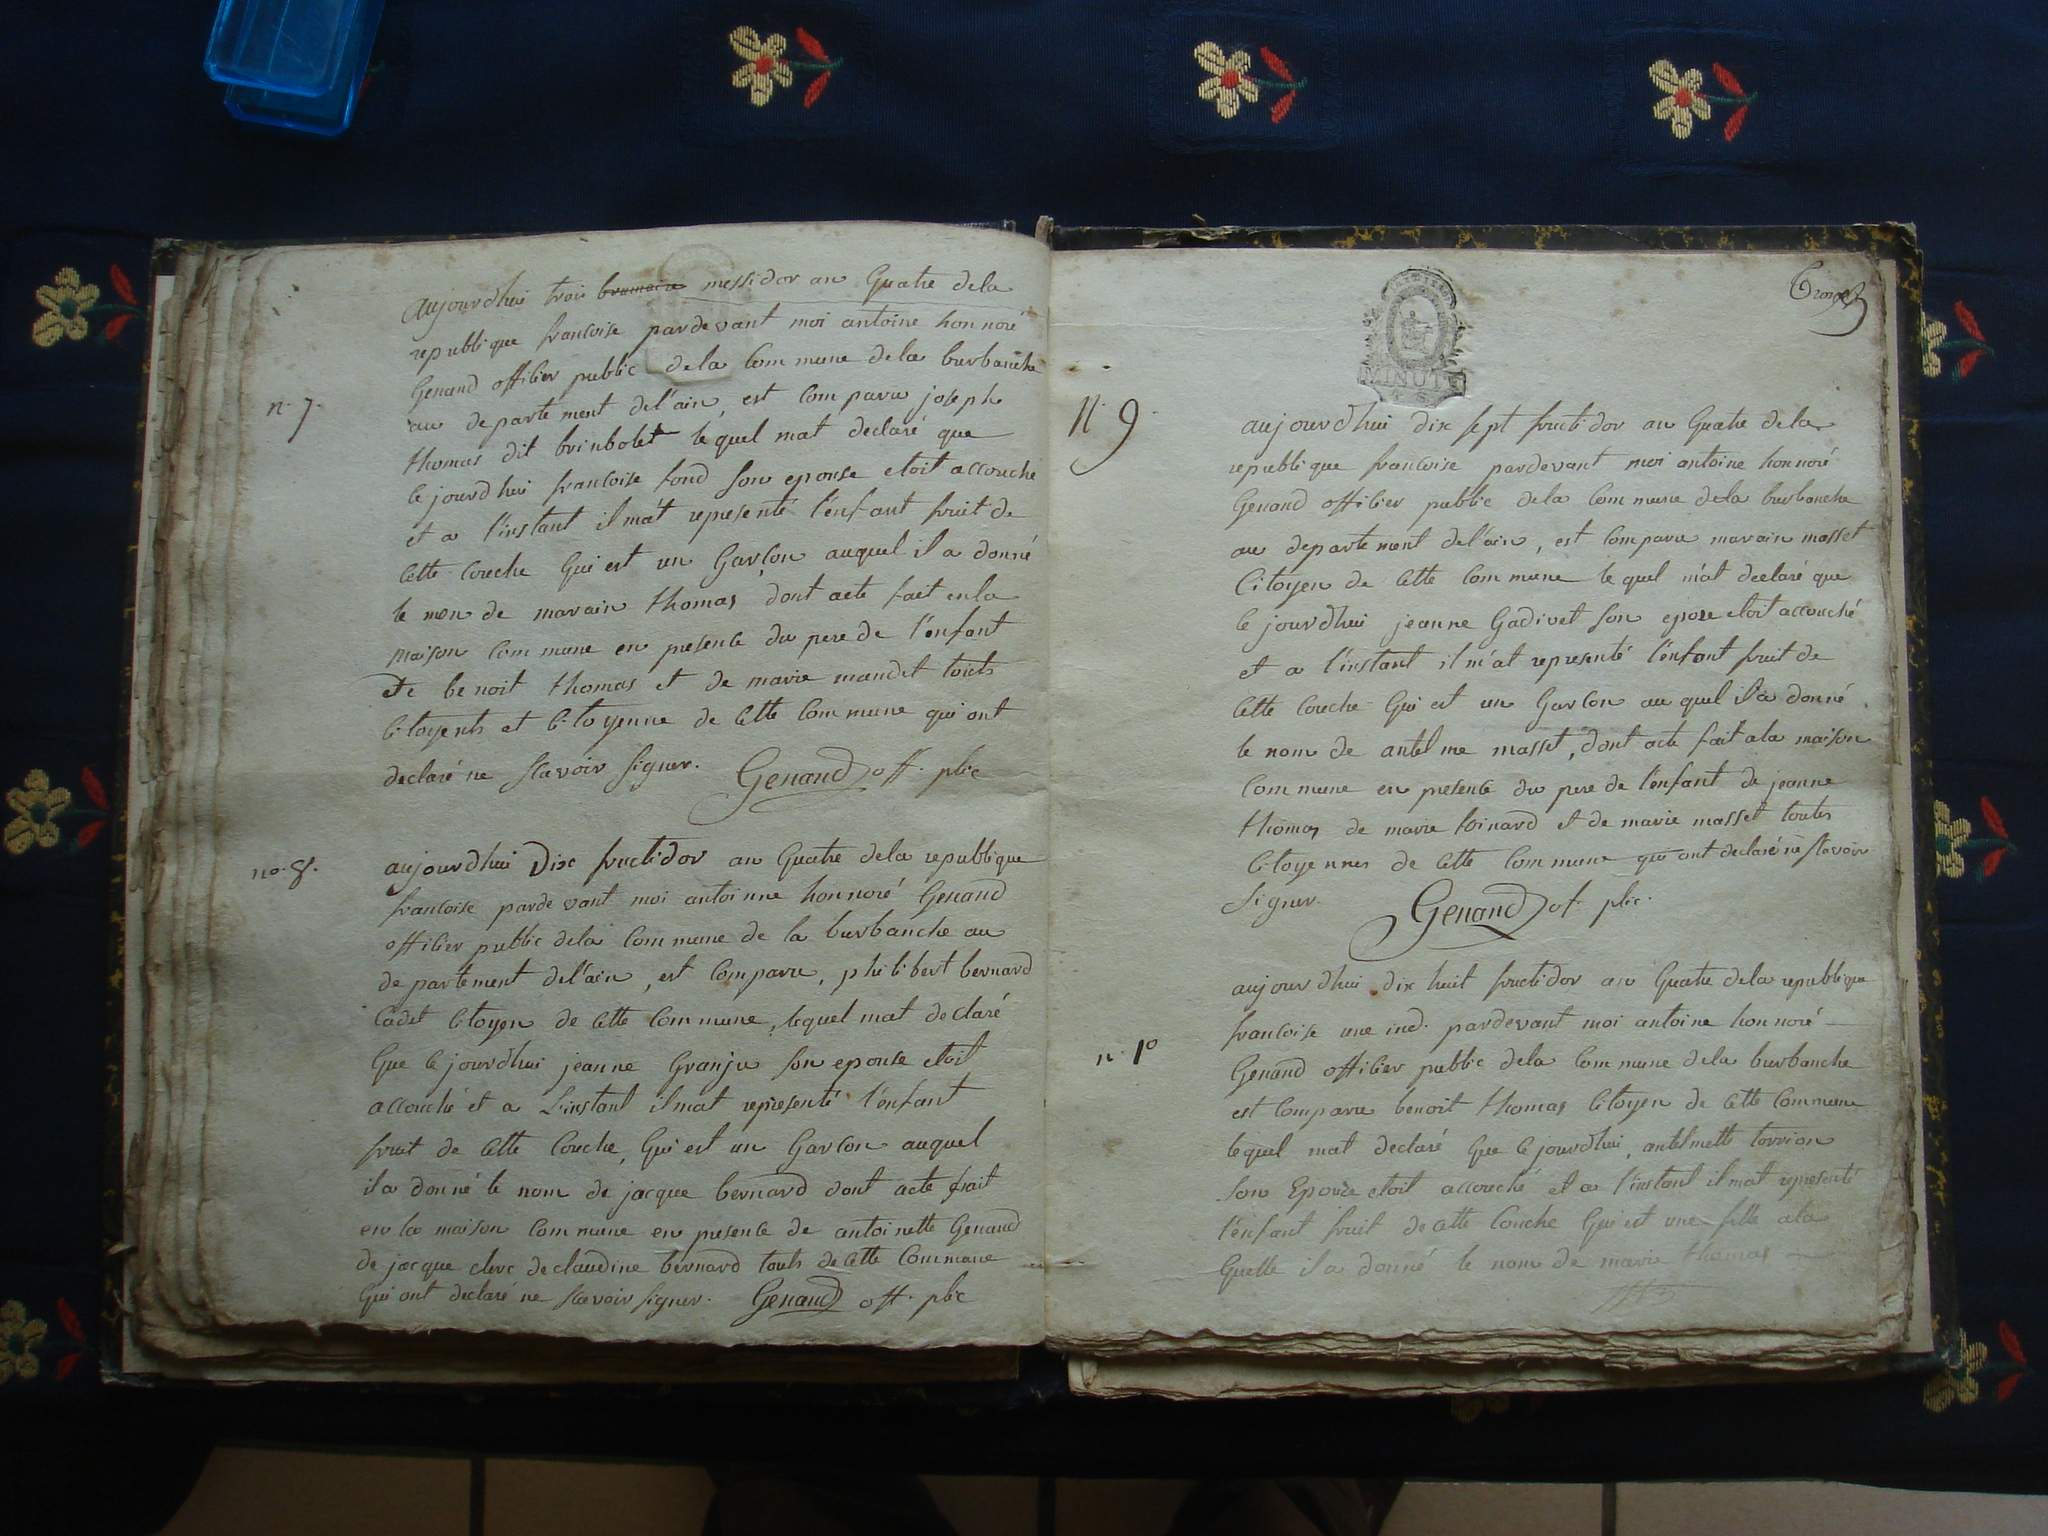 aujourdhui trois brumaire messidor an Quatre dela
republique francoise pardevant moi antoine honnoré
Genand officier public dela Commune dela burbanche
n. 7.
au departement del'ain, est comparu joseph
thomas dit brinbolet lequel mat declaré que
cejourdhui francoise fond son epouse etoit accouché
et a l'instant il ma't representé l'enfant fruit de
cette couche Qui est un Garçon auquel il a donné
le mon de marain thomas dont acte fait en la
maison commune en presence du pere de l'enfant
de benoit thomas et de marie mandet touts
citoyents et citoyenne de cette commune qui ont
declaré ne scavoir signer. Genand off. plic
no. 8.
aujourdhui Dix fructidor an Quatre dela republique
francoise pardevant moi antoinne honnoré Genand
officier public dela commune de la burbanche au
departement del'ain, est comparu, philibert bernard
cadet citoyen de cette commune, lequel mat declaré
Que cejourdhui jeanne Granju son epouse etoit
accouché et a L'instant ilmat representé l'enfant
fruit de cette couche, Qui est un Garcon auquel
il a donné le nom de jacque bernard dont acte frait
en la maison commune en presence de antoinette Genand
de jacque clerc declaudine bernard touts de cette commune
Qui ont declaré ne scavoir signer. Genand off. plic
MINUTE
n. 9.
aujourdhui dix sept fructidor an Quatre dela
republique francoise pardevant moi antoine honnoré
Genand officier public dela commune dela burbanche
au departement del'ain, est comparu marain masset
Citoyen de cette commune lequel m'at declaré que
cejourdhui jeanne Gadivet son epose etoit accouché
et a l'instant il m'at representé l'enfant fruit de
cette couche Qui est un Garcon au quel il a donné
le nom de antelme masset, dont acte fait ala maison
commune en presence du pere de l'enfant de jeanne
thomas de marie toinard et de marie masset toutes
citoyennes de cette commune qui ont declaré ne scavoir
signer. Genand of. plic.
aujourdhui dix huit fructidor an Quatre dela republique
francoise une ind. pardevant moi antoine honnoré
n. 10
Genand officier public dela commune dela burbanche
est comparu benoit thomas citoyen de cette commune
lequel mat declaré Que cejourdhui, antelmette torrion
son Epouse etoit accouché et a l'instant il mat representé
l'enfant fruit de cette couche Qui est une fille ala
Quelle il a donné le nom de marie thomas